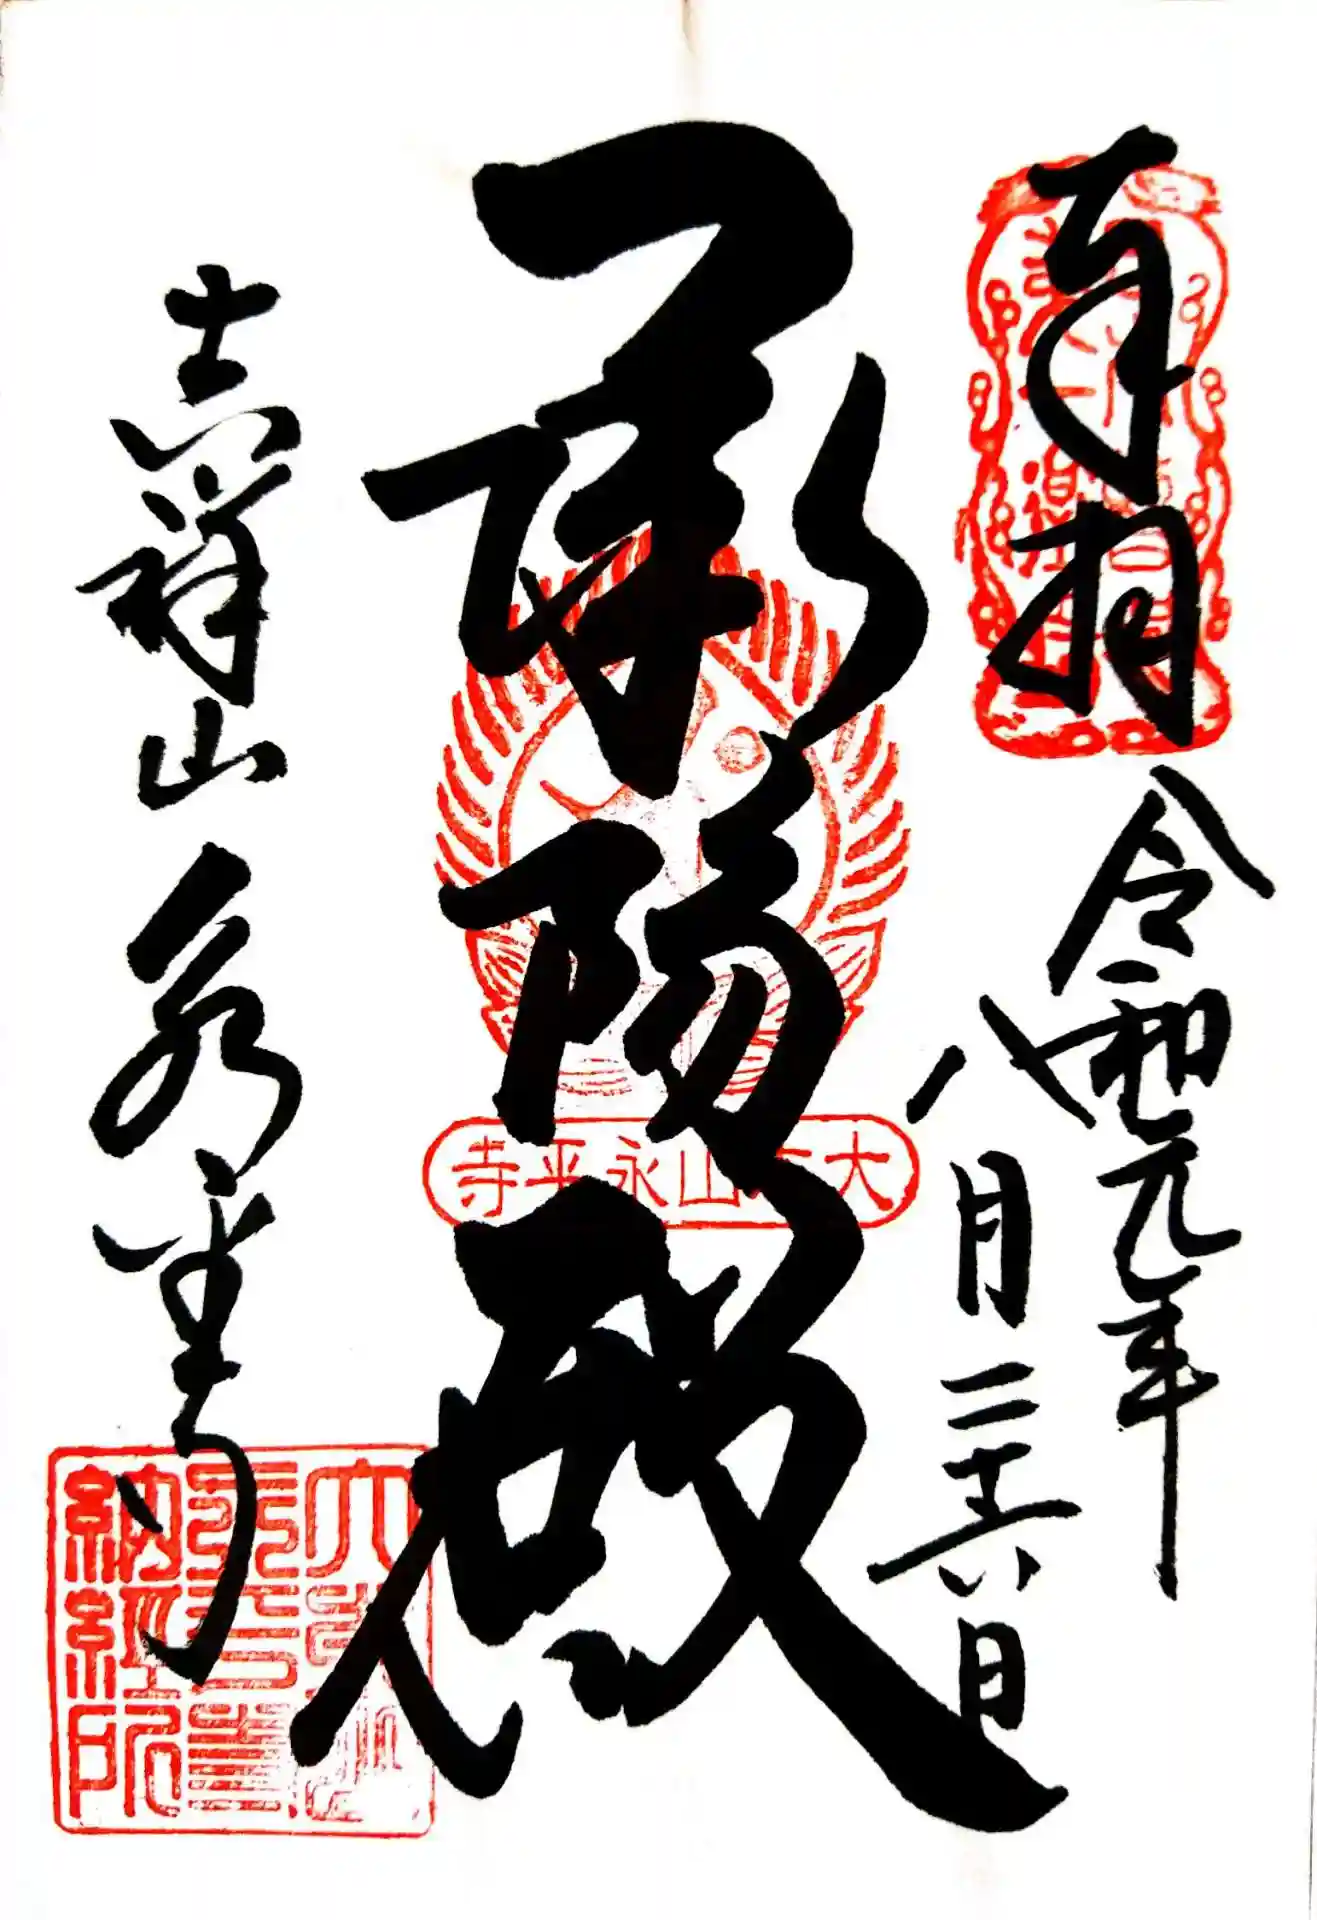 奉拝
令和元年
八月二十六日
承陽殿
吉祥山永平寺
大本山永平寺
大本山
永平寺
納経所